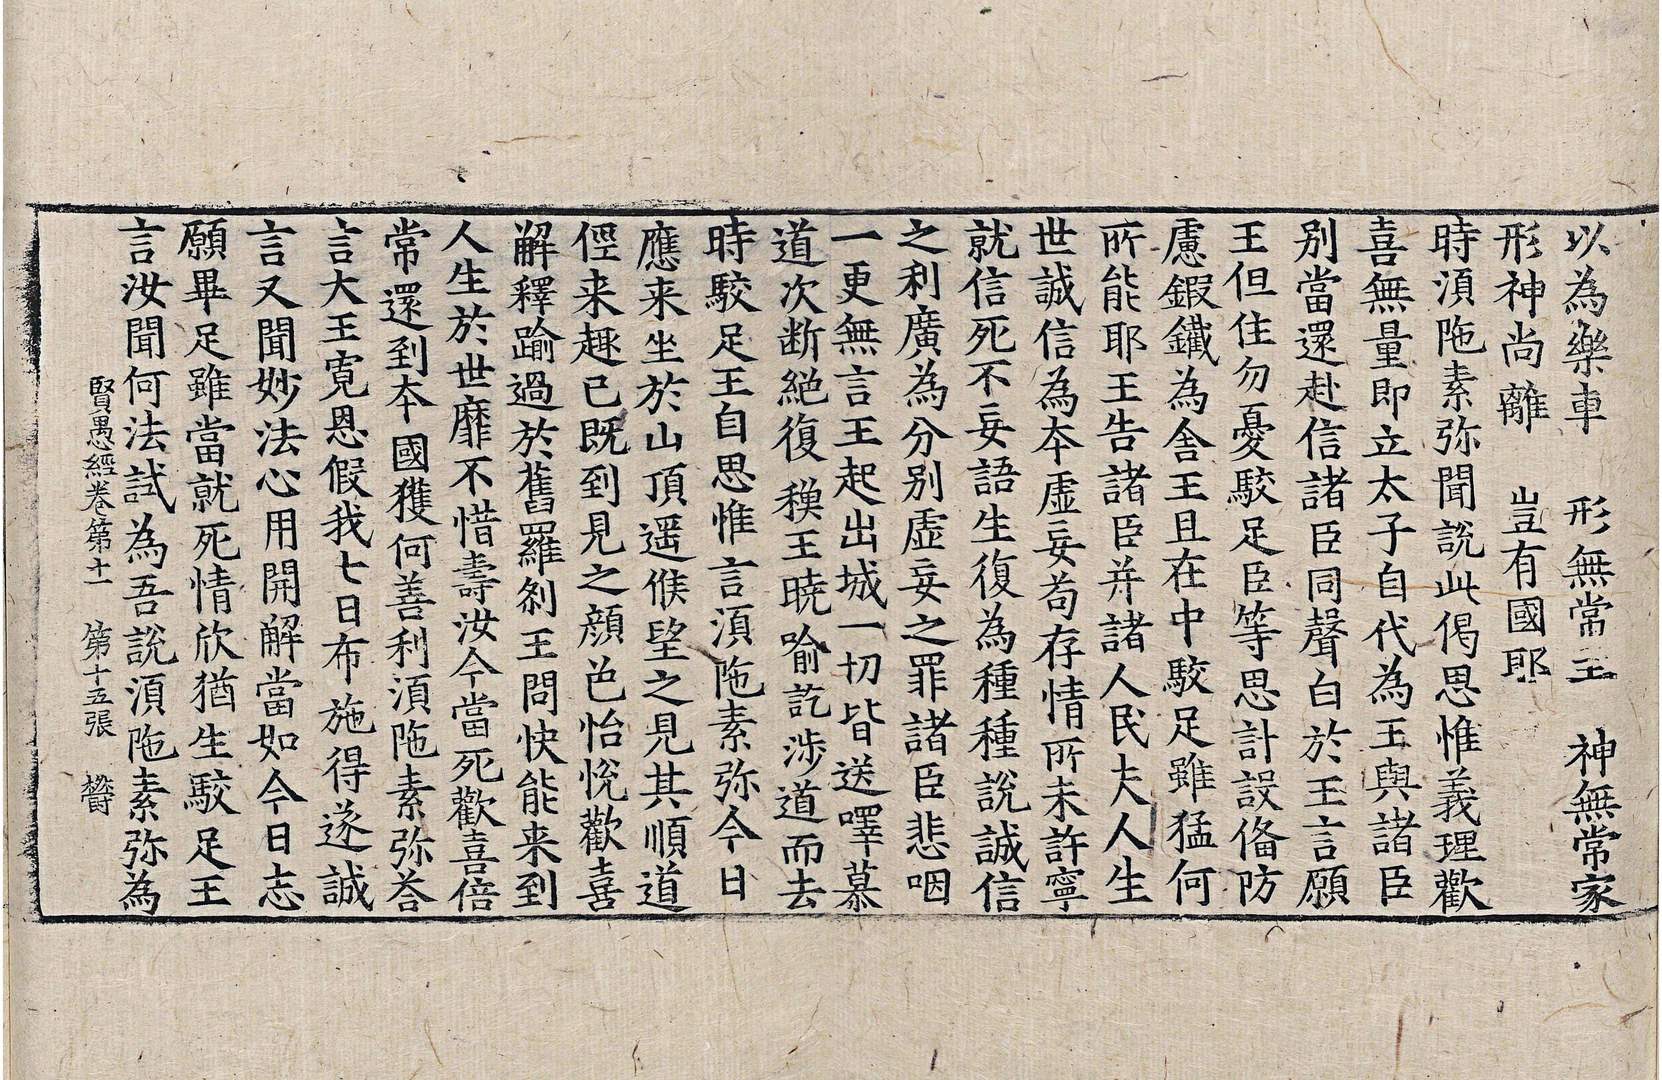 以為樂車　形無常主　神無常家
形神尚離　豈有國耶
時湏陁素弥聞說此偈思惟義理歡
喜無量即立太子自代為王與諸臣
別當還赴信諸臣同聲白於王言願
王但住勿憂駮足臣等思計設俻防
慮鍜鐵為舎王且在中駮足雖猛何
所能耶王告諸臣并諸人民夫人生
世誠信為夲虛妄苟存情所未許寧
就信死不妄語生復為種種說誠信
之利廣為分別虛妄之罪諸臣悲咽
一更無言王起出城一切皆送㘁慕
道次断絕復穌王曉喻訖涉道而去
時駮足王自思惟言湏陁素弥今日
應来坐於山頂遥候望之見其順道
俓来趣已既到見之顔色怡悅歡喜
解釋踰過於舊羅剎王問快能来到
人生於世靡不惜壽汝今當死歡喜倍
常還到夲國獲何善利湏陁素弥荅
言大王寛恩假我七日布施得遂誠
言又聞妙法心用開解當如今日志
願畢足雖當就死情欣猶生駮足王
言汝聞何法試為吾說湏陁素弥為
賢愚經卷第十一　第十五張　欝